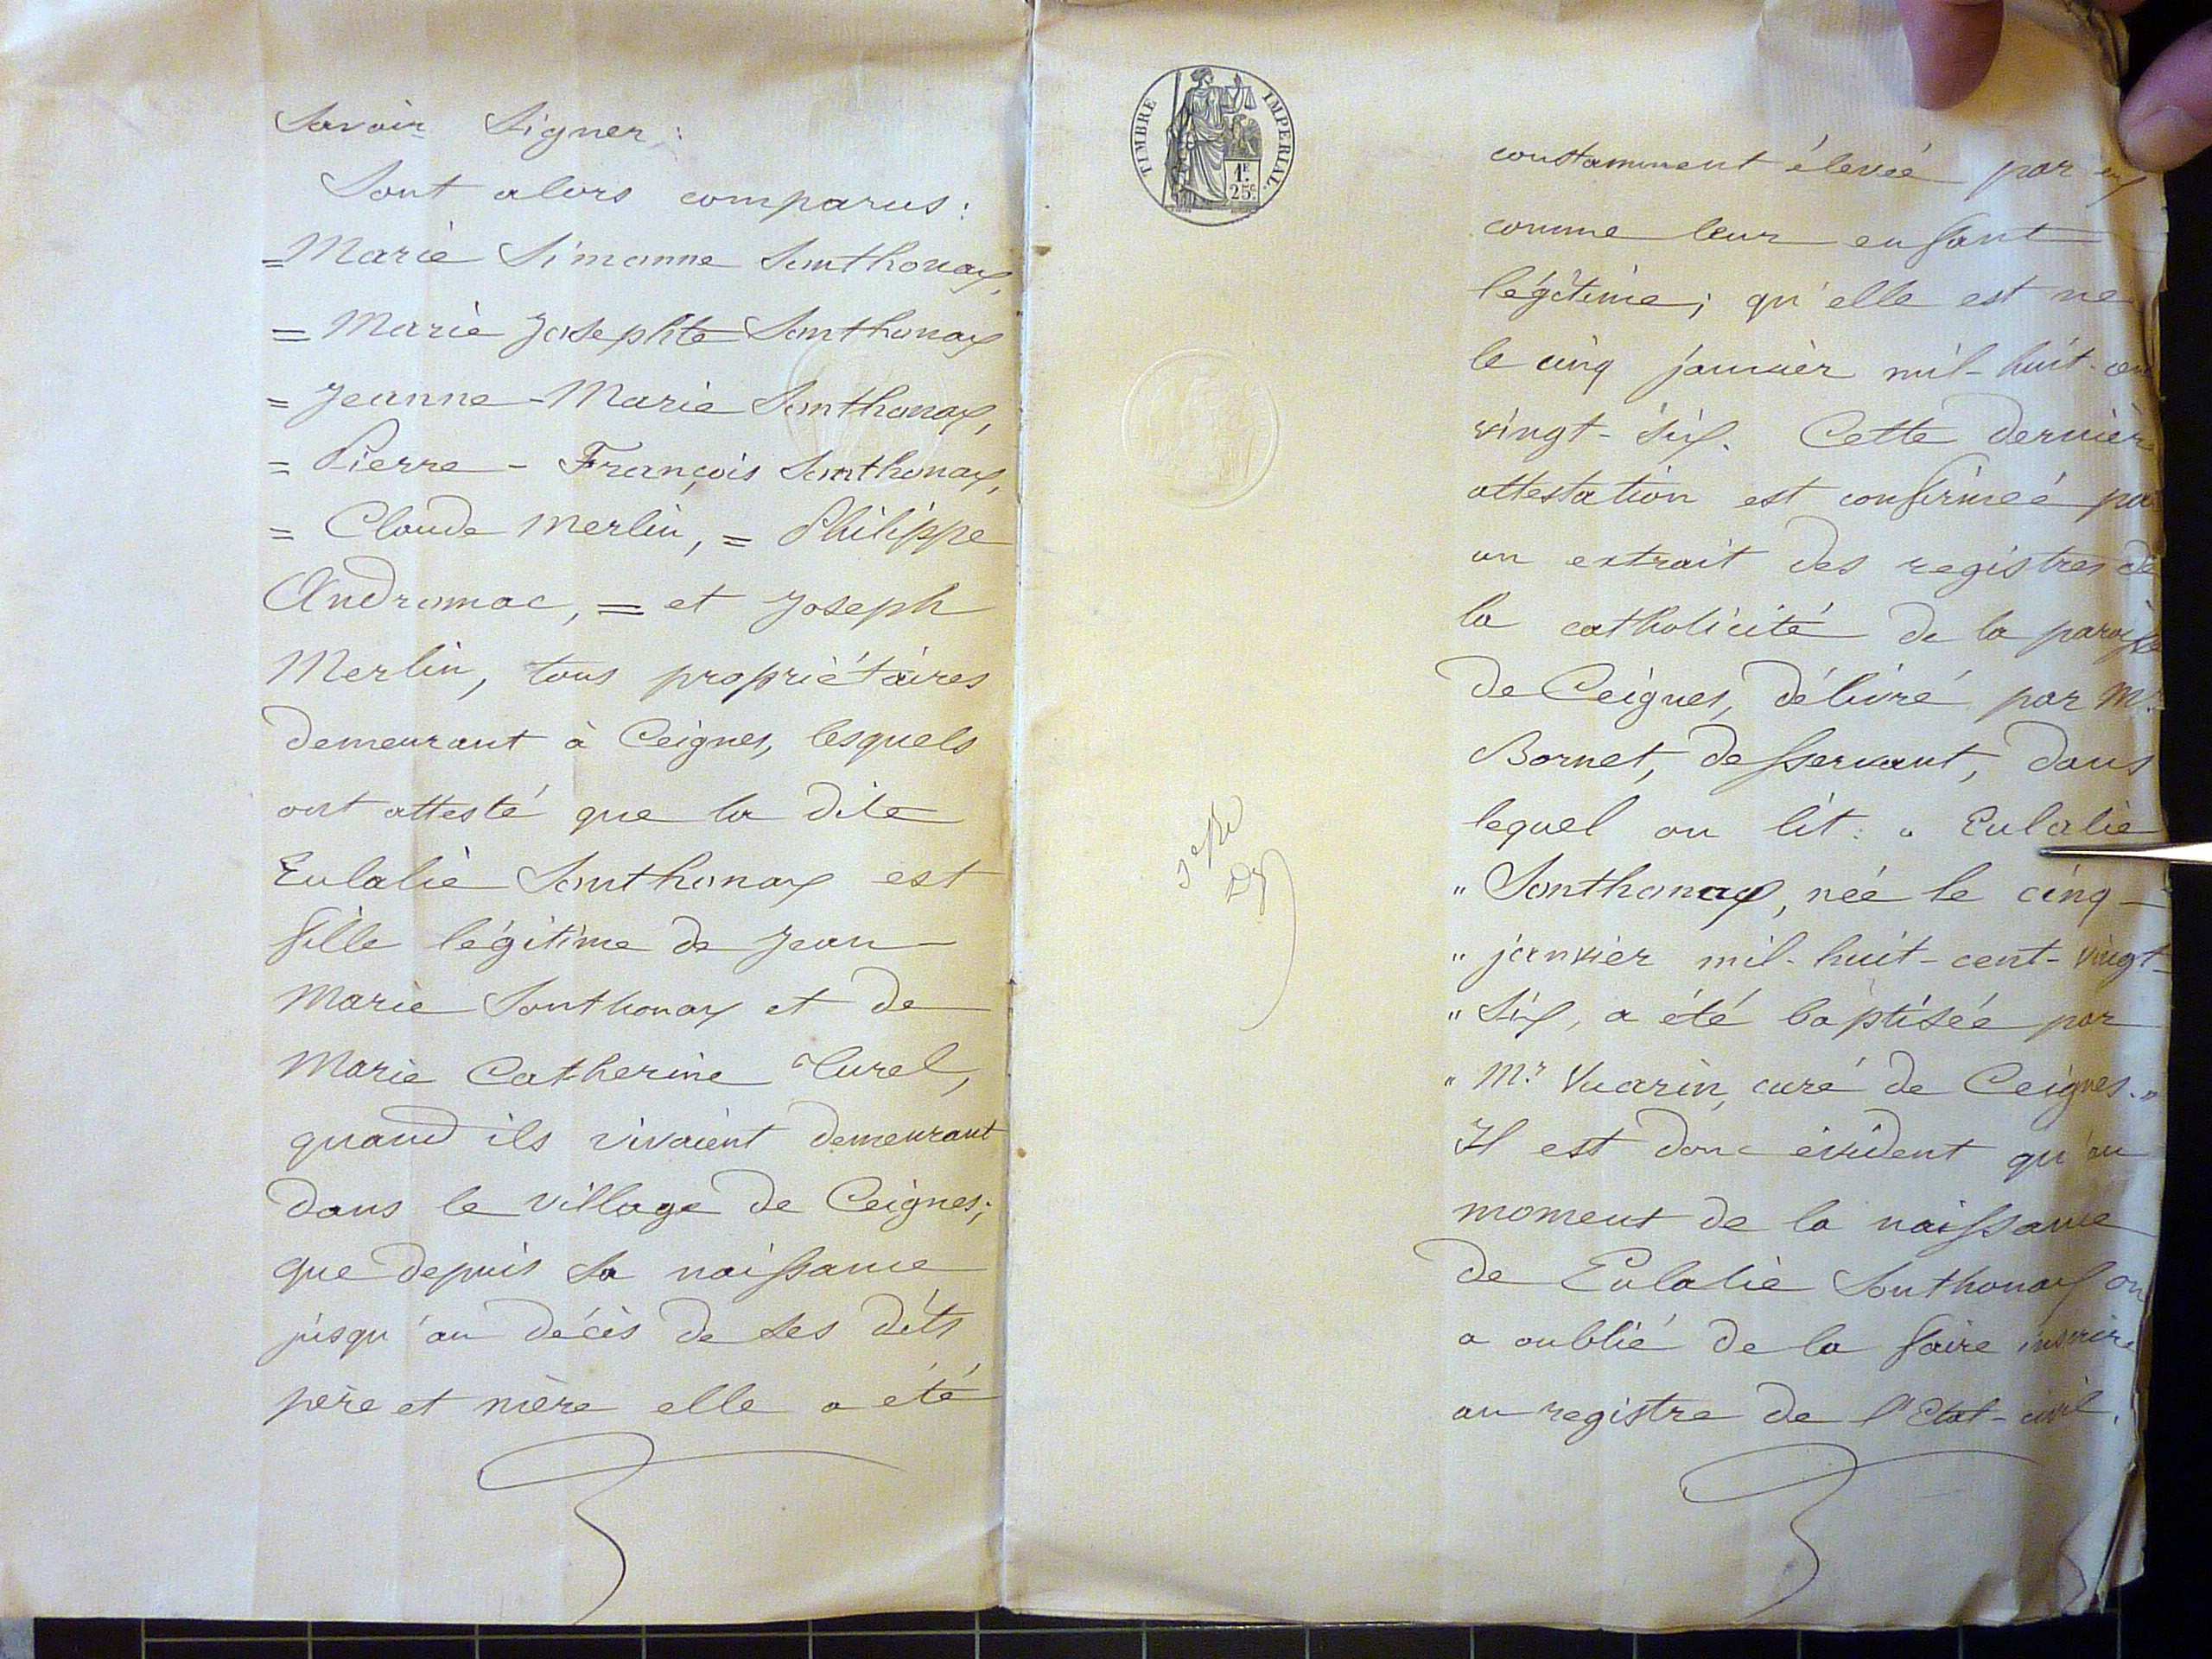 Savoir Signer:
Sont alors comparus:
= Marie Simonne Sonthonax,
= Marie Josephte Sonthonax
= Jeanne-Marie Sonthonax,
= Pierre-François Sonthonax,
= Claude Merlin, = Philippe
Andromac, = et Joseph
Merlin, tous propriétaires
demeurant à Ceignes, lesquels
ont attesté que la dite
Eulalie Sonthonax est
fille légitime de Jean-
Marie Sonthonax et de
Marie Catherine Turel,
quand ils vivaient demeurant
dans le village de Ceignes;
que depuis sa naissance
jusqu'au décès de ses dits
père et mère elle a été
TIMBRE IMPERIAL
1F.
25c.
constamment élevée par eux
comme leur enfant
légitime; qu'elle est née
le cinq janvier mil-huit-cent
vingt-six. Cette dernière
attestation est confirmée par
un extrait des registres de
la catholicité de la paroisse
de Ceignes, délivré par Mr.
Bornet, desservant, dans
lequel on lit: « Eulalie
" Sonthonax, née le cinq-
" janvier mil-huit-cent-vingt-
" Six, a été baptisée par
" Mr. Vuarin, curé de Ceignes. »
Il est donc évident qu'au
moment de la naissance
de Eulalie Sonthonax on
a oublié de la faire inscrire
au registre de l'Etat-civil.